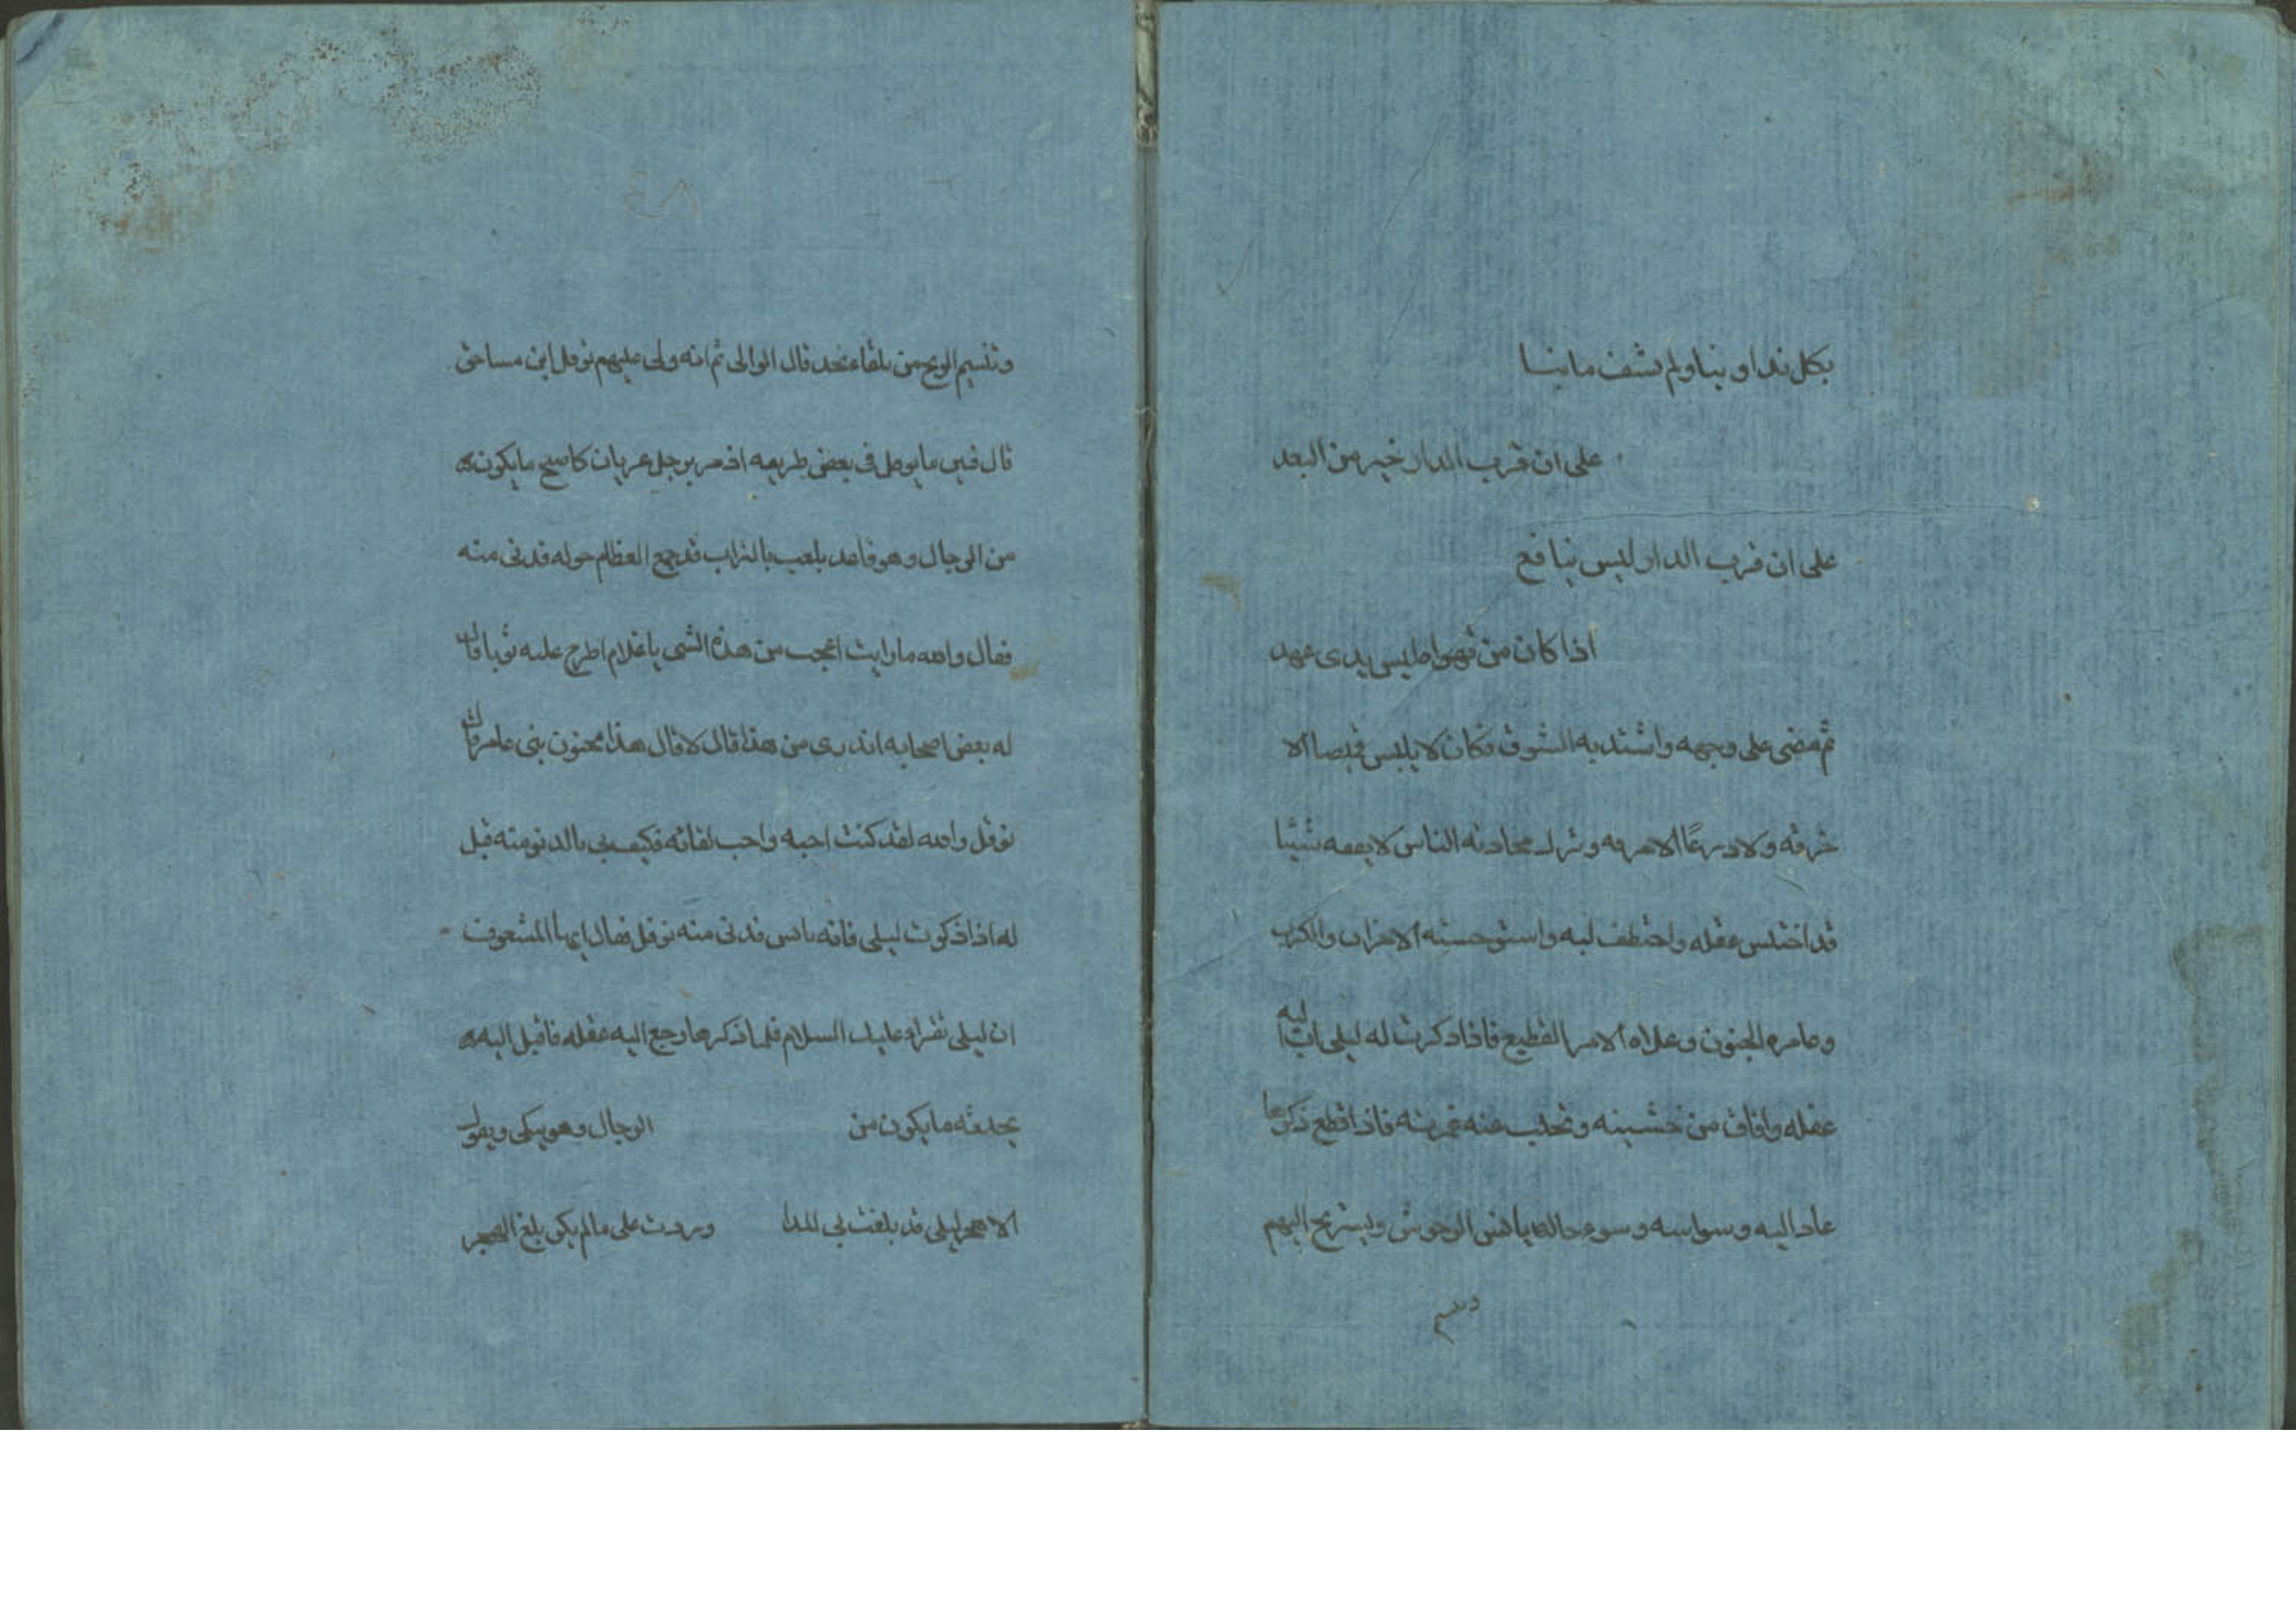 بكل تداوينا ولم تشف ما بنا
على ان قرب الدار خير من البعد
على ان قرب الدار ليس بنافع
اذا كان من تهواه ليس بذى عهد
ثم مضى على وجهه واشتد به الشوق فكان لا يلبس قميصا الا
خرقه ولا درعًا الا مزقه وترك محادثه الناس لا يفعه شيئا
قد اختلس عقله واختطف لبه واستوحسته الاحزان والكرب
وخامره الجنون وعلاه الامر الفظيع فاذا ذكرت له ليلى اب اليه
عقله وافاق من غشيته وتجلب عنه غمرته فاذا قطع ذكرها
عاد اليه وسواسه وسوء حاله يانس الوحوش ويستريح اليهم
وتنسيم
وتنسيم الريح من تلقاء نجد قال الوالى ثم انه ولى عليهم نوفل ابن مساحق
قال فبين ما نوفل فى بعض طريقه اذ مر برجل عريان كاصبح ما يكون
من الرجال وهو قاعد يلعب بالتراب قد جمع العظام حوله فدنى منه
فقال والله ما رايت اعجب من هذه الشى يا غلام اطرح عليه ثوبا قال
له بعض اصحابه اتدرى من هذا قال لا قال هذا مجنون بنى عامر قال
نوفل والله لقد كنت احبه واحب لقائه فكيف بى بالدنو منه قيل
له اذا ذكرت ليلى فانه يانس فدنى منه نوفل فقال ايها المشعوف
ان ليلى تقراء عليك السلام فلما ذكرها رجع اليه عقله فاقبل اليه
يحدثه ما يكون من الرجال وهو يبكى ويقول
الا هجر ليلى قد بلغت بى المدا وزدت على ما لم يكن بلغ الهجر